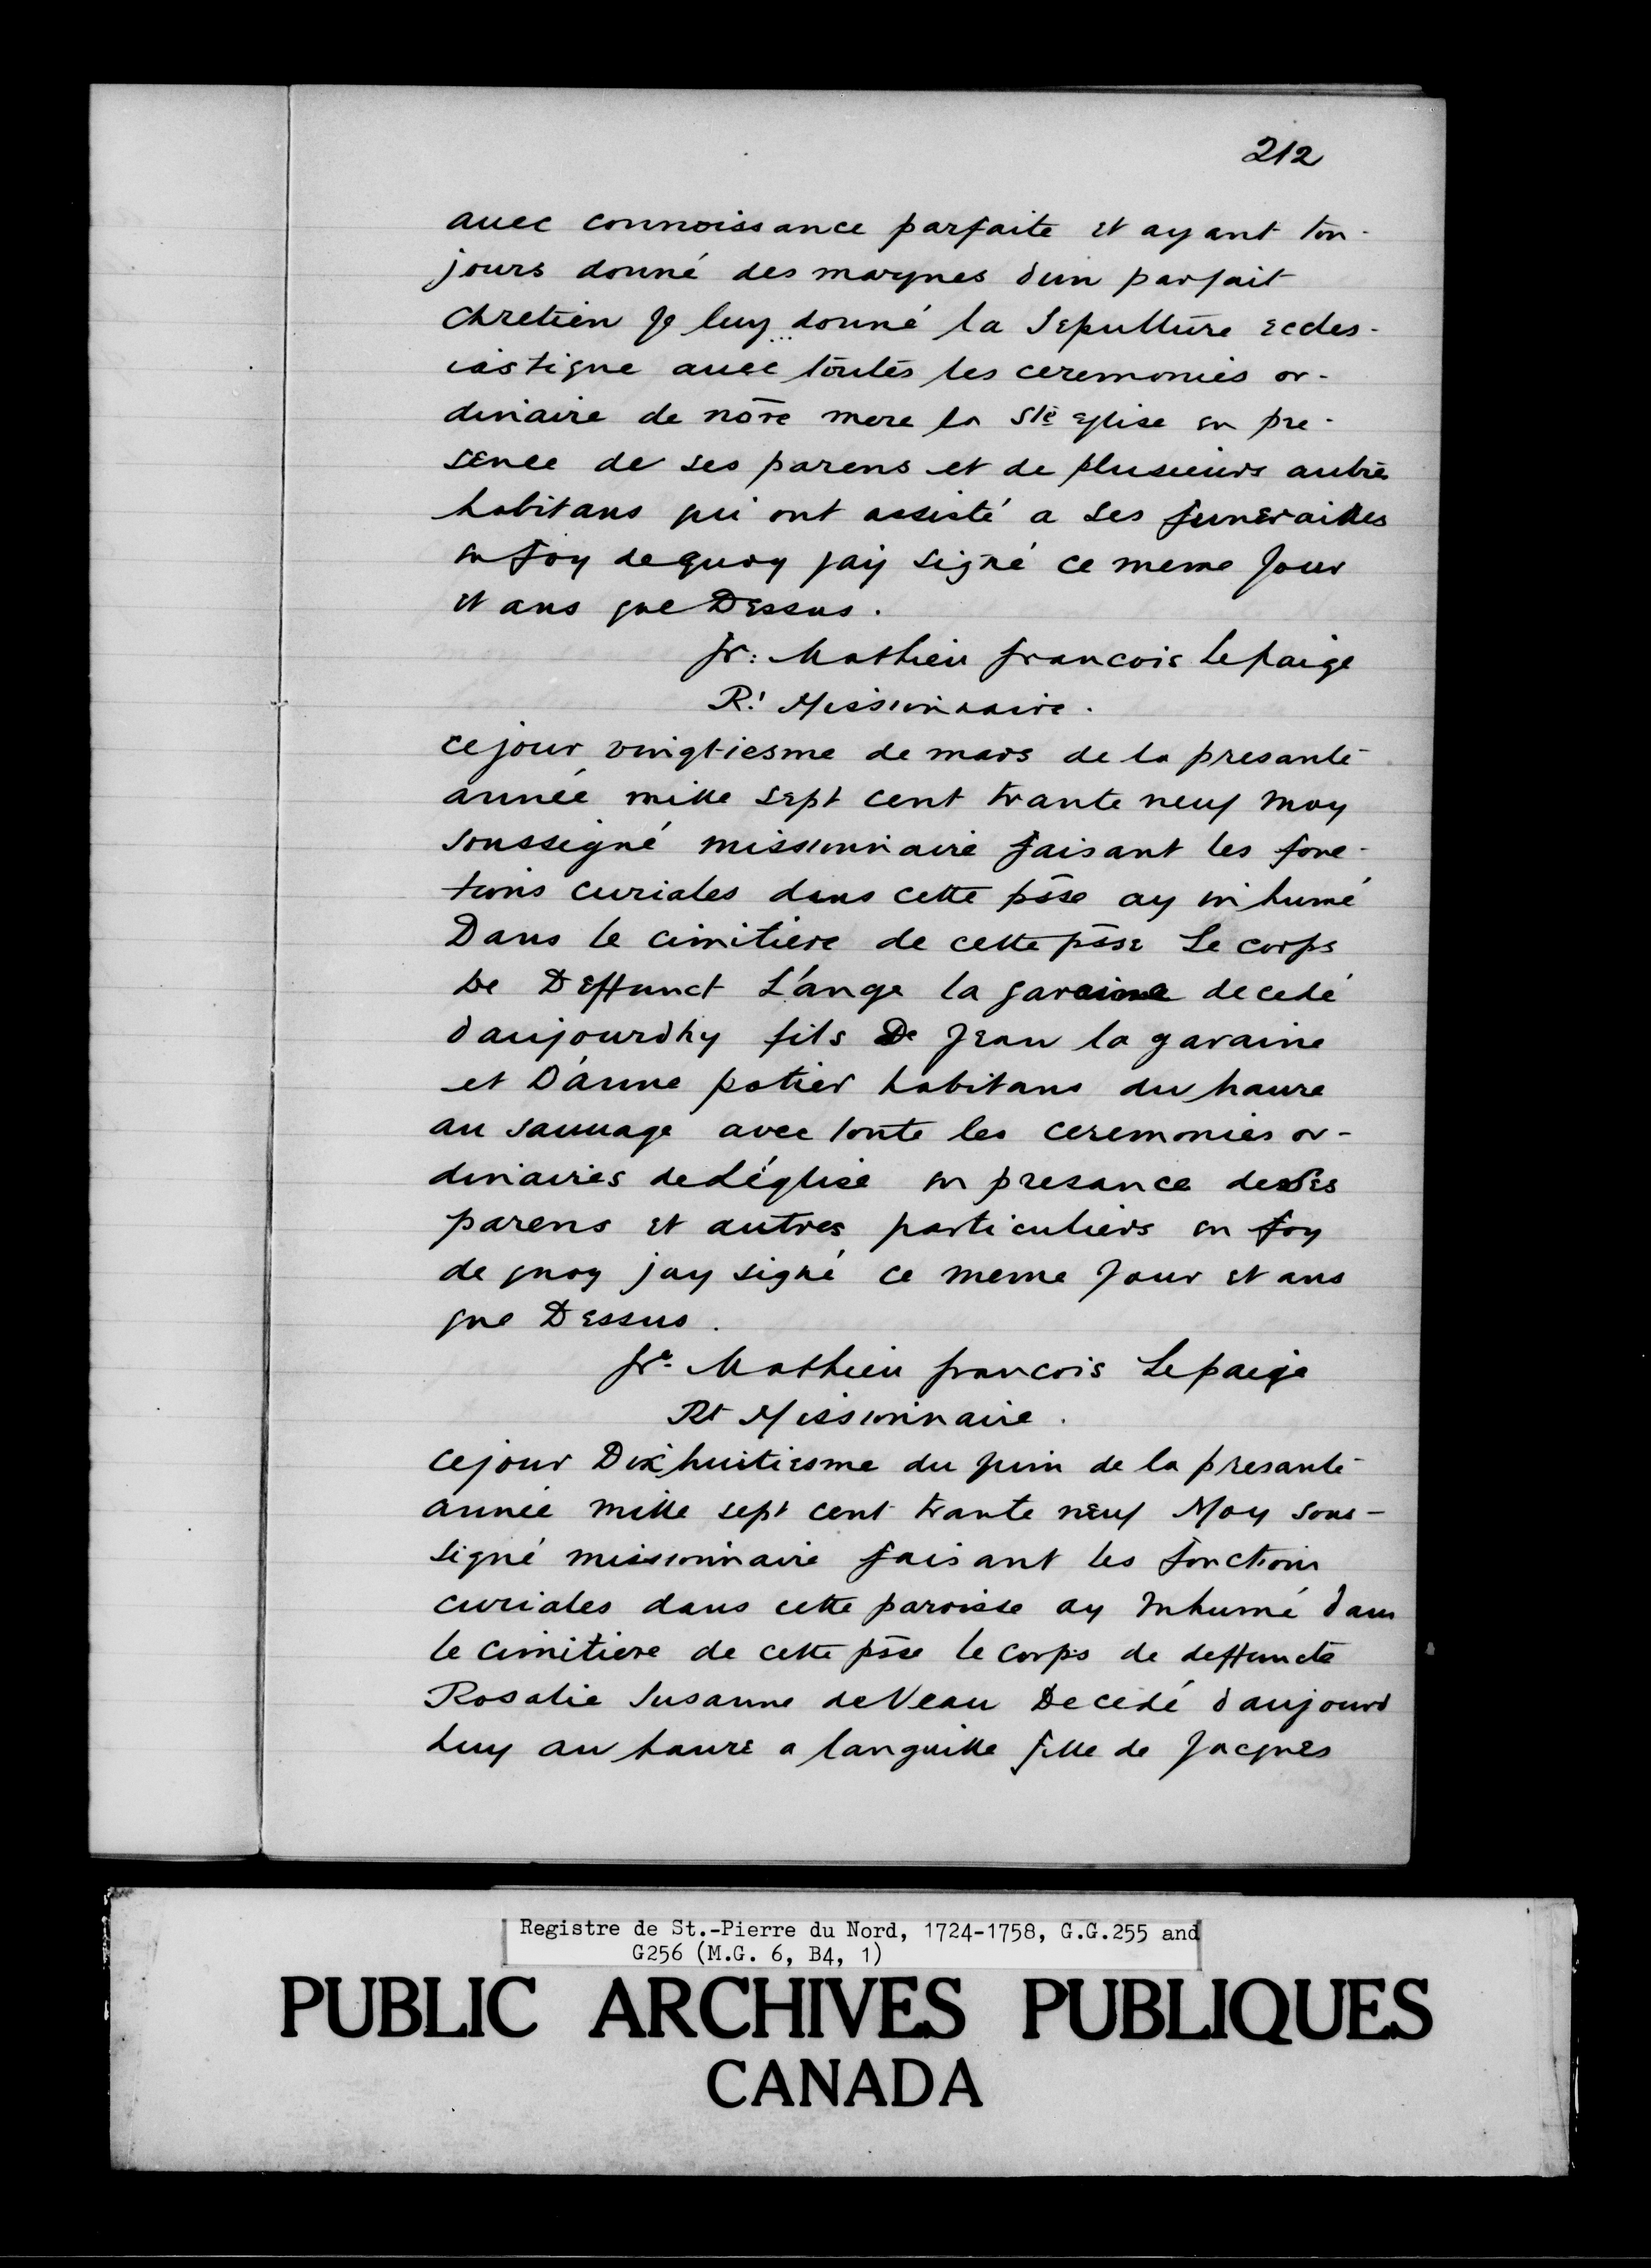 212
auec connoissance parfaite et ayant tou-
jours donné des marques d'un parfait
chretien Je luy ... donné la Sepulture eccles-
iastique auec toutes les ceremonies or-
dinaire de nõre mere la Ste eglise en pre-
sence de ses parens et de plusieurs autre
habitans qui ont assisté a ses funerailles
en foy de quoy jay signé ce meme Jour
et ans que Dessus.
fr: Mathieu francois Lepaige
R! Missionnaire.
ce jour vingtiesme de mars de la presante
année mille sept cent trante neuf moy
soussigné missionnaire faisant les fonc-
tions curiales dans cette põsse ay inhumé
Dans le cimitiere de cette põsse Le corps
De Deffunct L'ange la garaine decedé
daujourdhy fils De Jean la garaine
et D'anne potier habitans du haure
au sauuage avec toute les ceremonies or-
dinaires de L'église en presance de ses
parens et autres particuliers en foy
de quoy jay signé ce meme Jour et ans
que Dessus.
fre. Mathieu francois Lepaige
Rt Missionnaire.
ce jour Dix huitiesme du juin de la presante
année mille sept cent trante neuf Moy sous-
signé missionnaire faisant les fonctions
curiales dans cette paroisse ay Inhumé dans
le cimitiere de cette põsse le corps de deffuncte
Rosalie Susanne deVeau Decedé daujourd
huy au haure a languille fille de Jacques
Registre de St.-Pierre du Nord, 1724-1758, G.G.255 and
G256 (M.G. 6, B4, 1)
PUBLIC ARCHIVES PUBLIQUES
CANADA